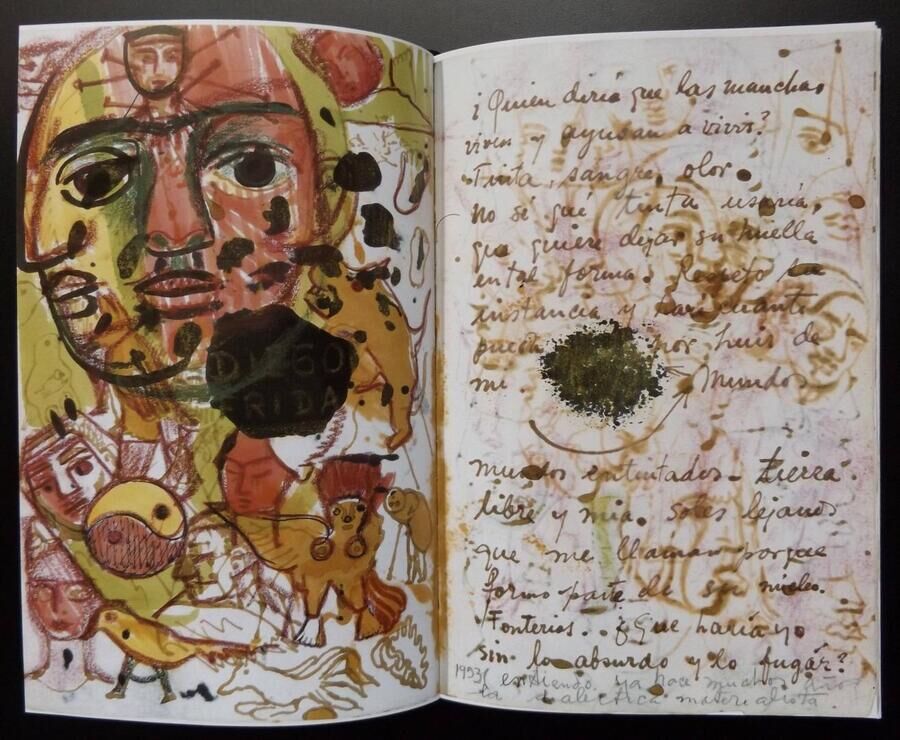 DIEGO
FRIDA
¿Quien diría que las manchas
viven y ayudan a vivir?
Tinta, sangre, olor.
No sé qué tinta usaría,
que quiere dejar su huella
en tal forma. Respeto su
instancia y haré cuanto
pueda por huir de
mi Mundos
mundos entintados – tierra
libre y mia. soles lejanos
que me llaman porque
formo parte de su núcleo.
Tonterias. ¿Que haría yo
sin lo absurdo y lo fugáz?
1953 entiendo ya hace muchos años
la dialectica materialista.